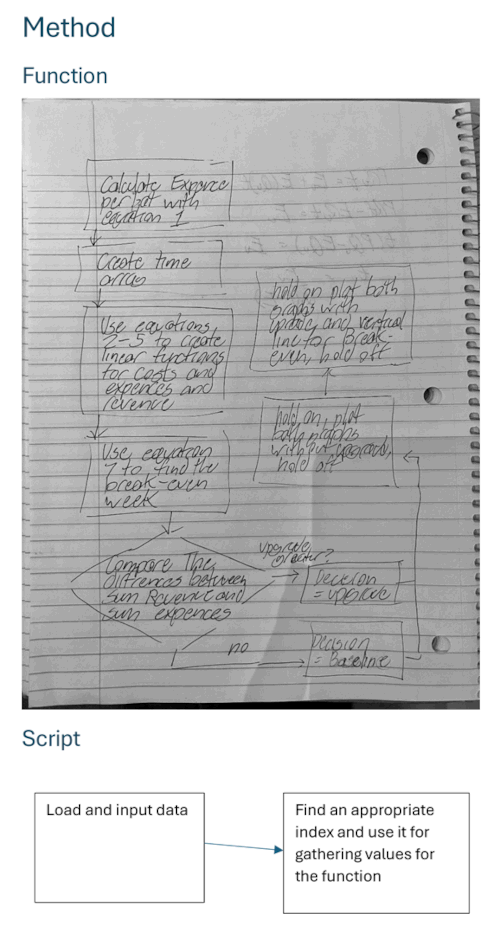 Method
Function
Calculate Expance
per hat with
equation 1
Create time
array
Use equations
2-5 to create
linear functions
for costs and
expences and
revenue
Use equation
7 to find the
break-even
week
Compare The
diffrences between
sum Revenue and
sum expences
upgrade
greater?
Decision
= upgrade
no
Decision
= Baseline
hold on, plot
both graphs
without upgrade,
hold off
hold on plot both
graphs with
update and vertical
line for Break-
even, hold off
Script
Load and input data
Find an appropriate
index and use it for
gathering values for
the function